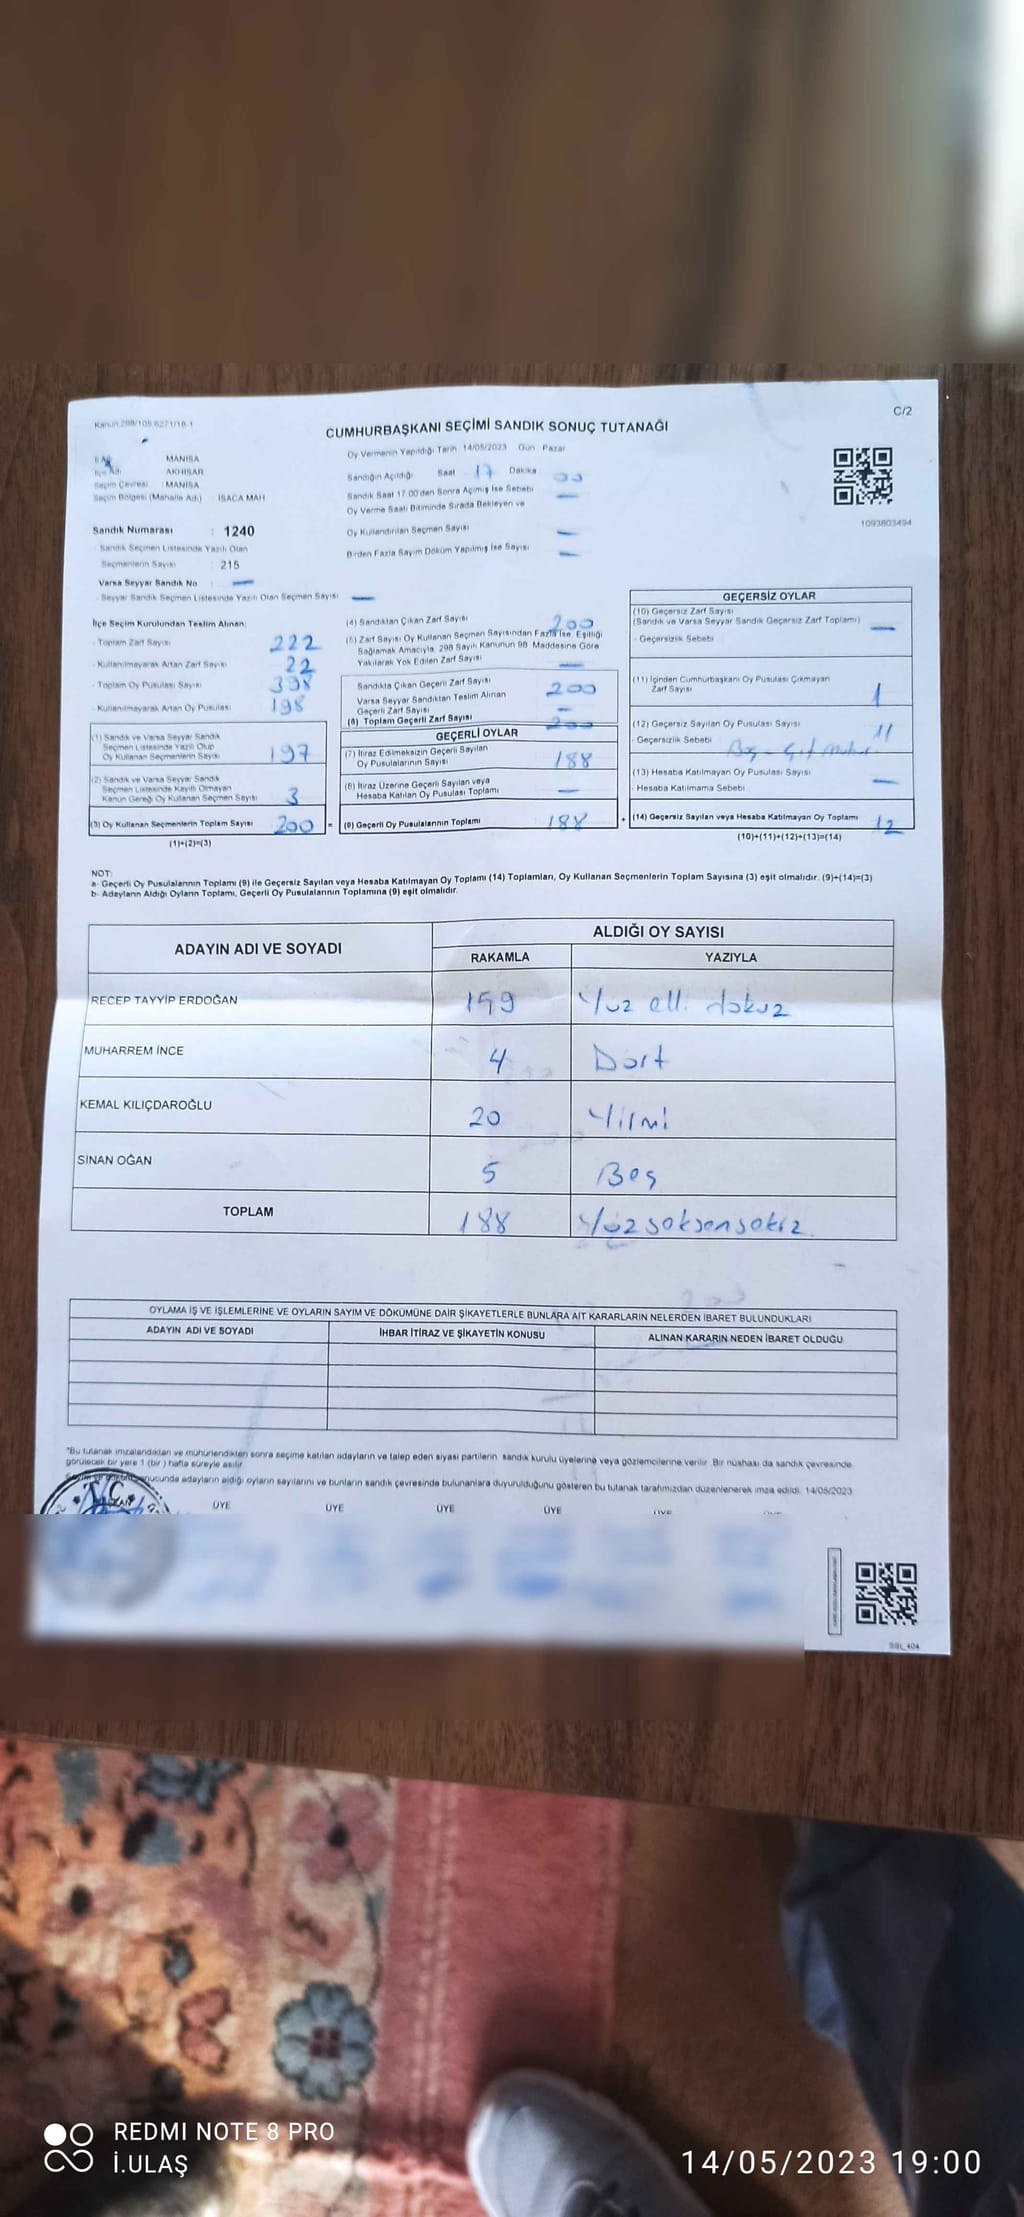 Kanun 298/105 6271/18-1
C/2
CUMHURBAŞKANI SEÇİMİ SANDIK SONUÇ TUTANAĞI
İl Adı MANİSA
İlçe Adı AKHİSAR
Seçim Çevresi : MANİSA
Seçim Bölgesi (Mahalle Adı) ISACA MAH
Sandık Numarası : 1240
Sandık Seçmen Listesinde Yazılı Olan
Seçmenlerin Sayısı : 215
Varsa Seyyar Sandık No : —
- Seyyar Sandık Seçmen Listesinde Yazılı Olan Seçmen Sayısı —
Oy Vermenin Yapıldığı Tarih 14/05/2023 Gün Pazar
Sandığın Açıldığı Saat 17 Dakika 00
Sandık Saat 17.00'den Sonra Açımış İse Sebebi —
Oy Verme Saati Bitiminde Sırada Bekleyen ve
Oy Kullandırılan Seçmen Sayısı —
Birden Fazla Sayım Döküm Yapılmış İse Sayısı —
1093803494
İlçe Seçim Kurulundan Teslim Alınan;
- Toplam Zarf Sayısı 222
- Kullanılmayarak Artan Zarf Sayısı 22
- Toplam Oy Pusulası Sayısı 398
- Kullanılmayarak Artan Oy Pusulası 198
(1) Sandık ve Varsa Seyyar Sandık
Seçmen Listesinde Yazılı Olup
Oy Kullanan Seçmenlerin Sayısı 197
(2) Sandık ve Varsa Seyyar Sandık
Seçmen Listesinde Kayıtlı Olmayan
Kanun Gereği Oy Kullanan Seçmen Sayısı 3
(3) Oy Kullanan Seçmenlerin Toplam Sayısı 200 =
(1)+(2)=(3)
(4) Sandıktan Çıkan Zarf Sayısı 200
(5) Zarf Sayısı Oy Kullanan Seçmen Sayısından Fazla İse, Eşitliği
Sağlamak Amacıyla, 298 Sayılı Kanunun 98. Maddesine Göre
Yakılarak Yok Edilen Zarf Sayısı —
Sandıkta Çıkan Geçerli Zarf Sayısı 200
Varsa Seyyar Sandıktan Teslim Alınan
Geçerli Zarf Sayısı —
(6) Toplam Geçerli Zarf Sayısı 200
GEÇERLİ OYLAR
(7) İtiraz Edilmeksizin Geçerli Sayılan
Oy Pusulalarının Sayısı 188
(8) İtiraz Üzerine Geçerli Sayılan veya
Hesaba Katılan Oy Pusulası Toplamı —
(9) Geçerli Oy Pusulalarının Toplamı 188 +
GEÇERSİZ OYLAR
(10) Geçersiz Zarf Sayısı
(Sandık ve Varsa Seyyar Sandık Geçersiz Zarf Toplamı) —
- Geçersizlik Sebebi
(11) İçinden Cumhurbaşkanı Oy Pusulası Çıkmayan
Zarf Sayısı 1
(12) Geçersiz Sayılan Oy Pusulası Sayısı 11
- Geçersizlik Sebebi Boş - Çift Mühür
(13) Hesaba Katılmayan Oy Pusulası Sayısı —
- Hesaba Katılmama Sebebi
(14) Geçersiz Sayılan veya Hesaba Katılmayan Oy Toplamı 12
(10)+(11)+(12)+(13)=(14)
NOT:
a- Geçerli Oy Pusulalarının Toplamı (9) ile Geçersiz Sayılan veya Hesaba Katılmayan Oy Toplamı (14) Toplamları, Oy Kullanan Seçmenlerin Toplam Sayısına (3) eşit olmalıdır. (9)+(14)=(3)
b- Adayların Aldığı Oyların Toplamı, Geçerli Oy Pusulalarının Toplamına (9) eşit olmalıdır.
ADAYIN ADI VE SOYADI ALDIĞI OY SAYISI
RAKAMLA YAZIYLA
RECEP TAYYİP ERDOĞAN 159 Yüz elli dokuz
MUHARREM İNCE 4 Dört
KEMAL KILIÇDAROĞLU 20 Yirmi
SİNAN OĞAN 5 Beş
TOPLAM 188 Yüzseksensekiz
OYLAMA İŞ VE İŞLEMLERİNE VE OYLARIN SAYIM VE DÖKÜMÜNE DAİR ŞİKAYETLERLE BUNLARA AİT KARARLARIN NELERDEN İBARET BULUNDUKLARI
ADAYIN ADI VE SOYADI İHBAR İTİRAZ VE ŞİKAYETİN KONUSU ALINAN KARARIN NEDEN İBARET OLDUĞU
*Bu tutanak imzalandıktan ve mühürlendikten sonra seçime katılan adayların ve talep eden siyasi partilerin sandık kurulu üyelerine veya gözlemcilerine verilir. Bir nüshası da sandık çevresinde
görülecek bir yere 1 (bir) hafta süreyle asılır.
sonucunda adayların aldığı oyların sayılarını ve bunların sandık çevresinde bulunanlara duyurulduğunu gösteren bu tutanak tarafımızdan düzenlenerek imza edildi. 14/05/2023
ÜYE ÜYE ÜYE ÜYE ÜYE
SSL_404
REDMI NOTE 8 PRO
İ.ULAŞ
14/05/2023 19:00